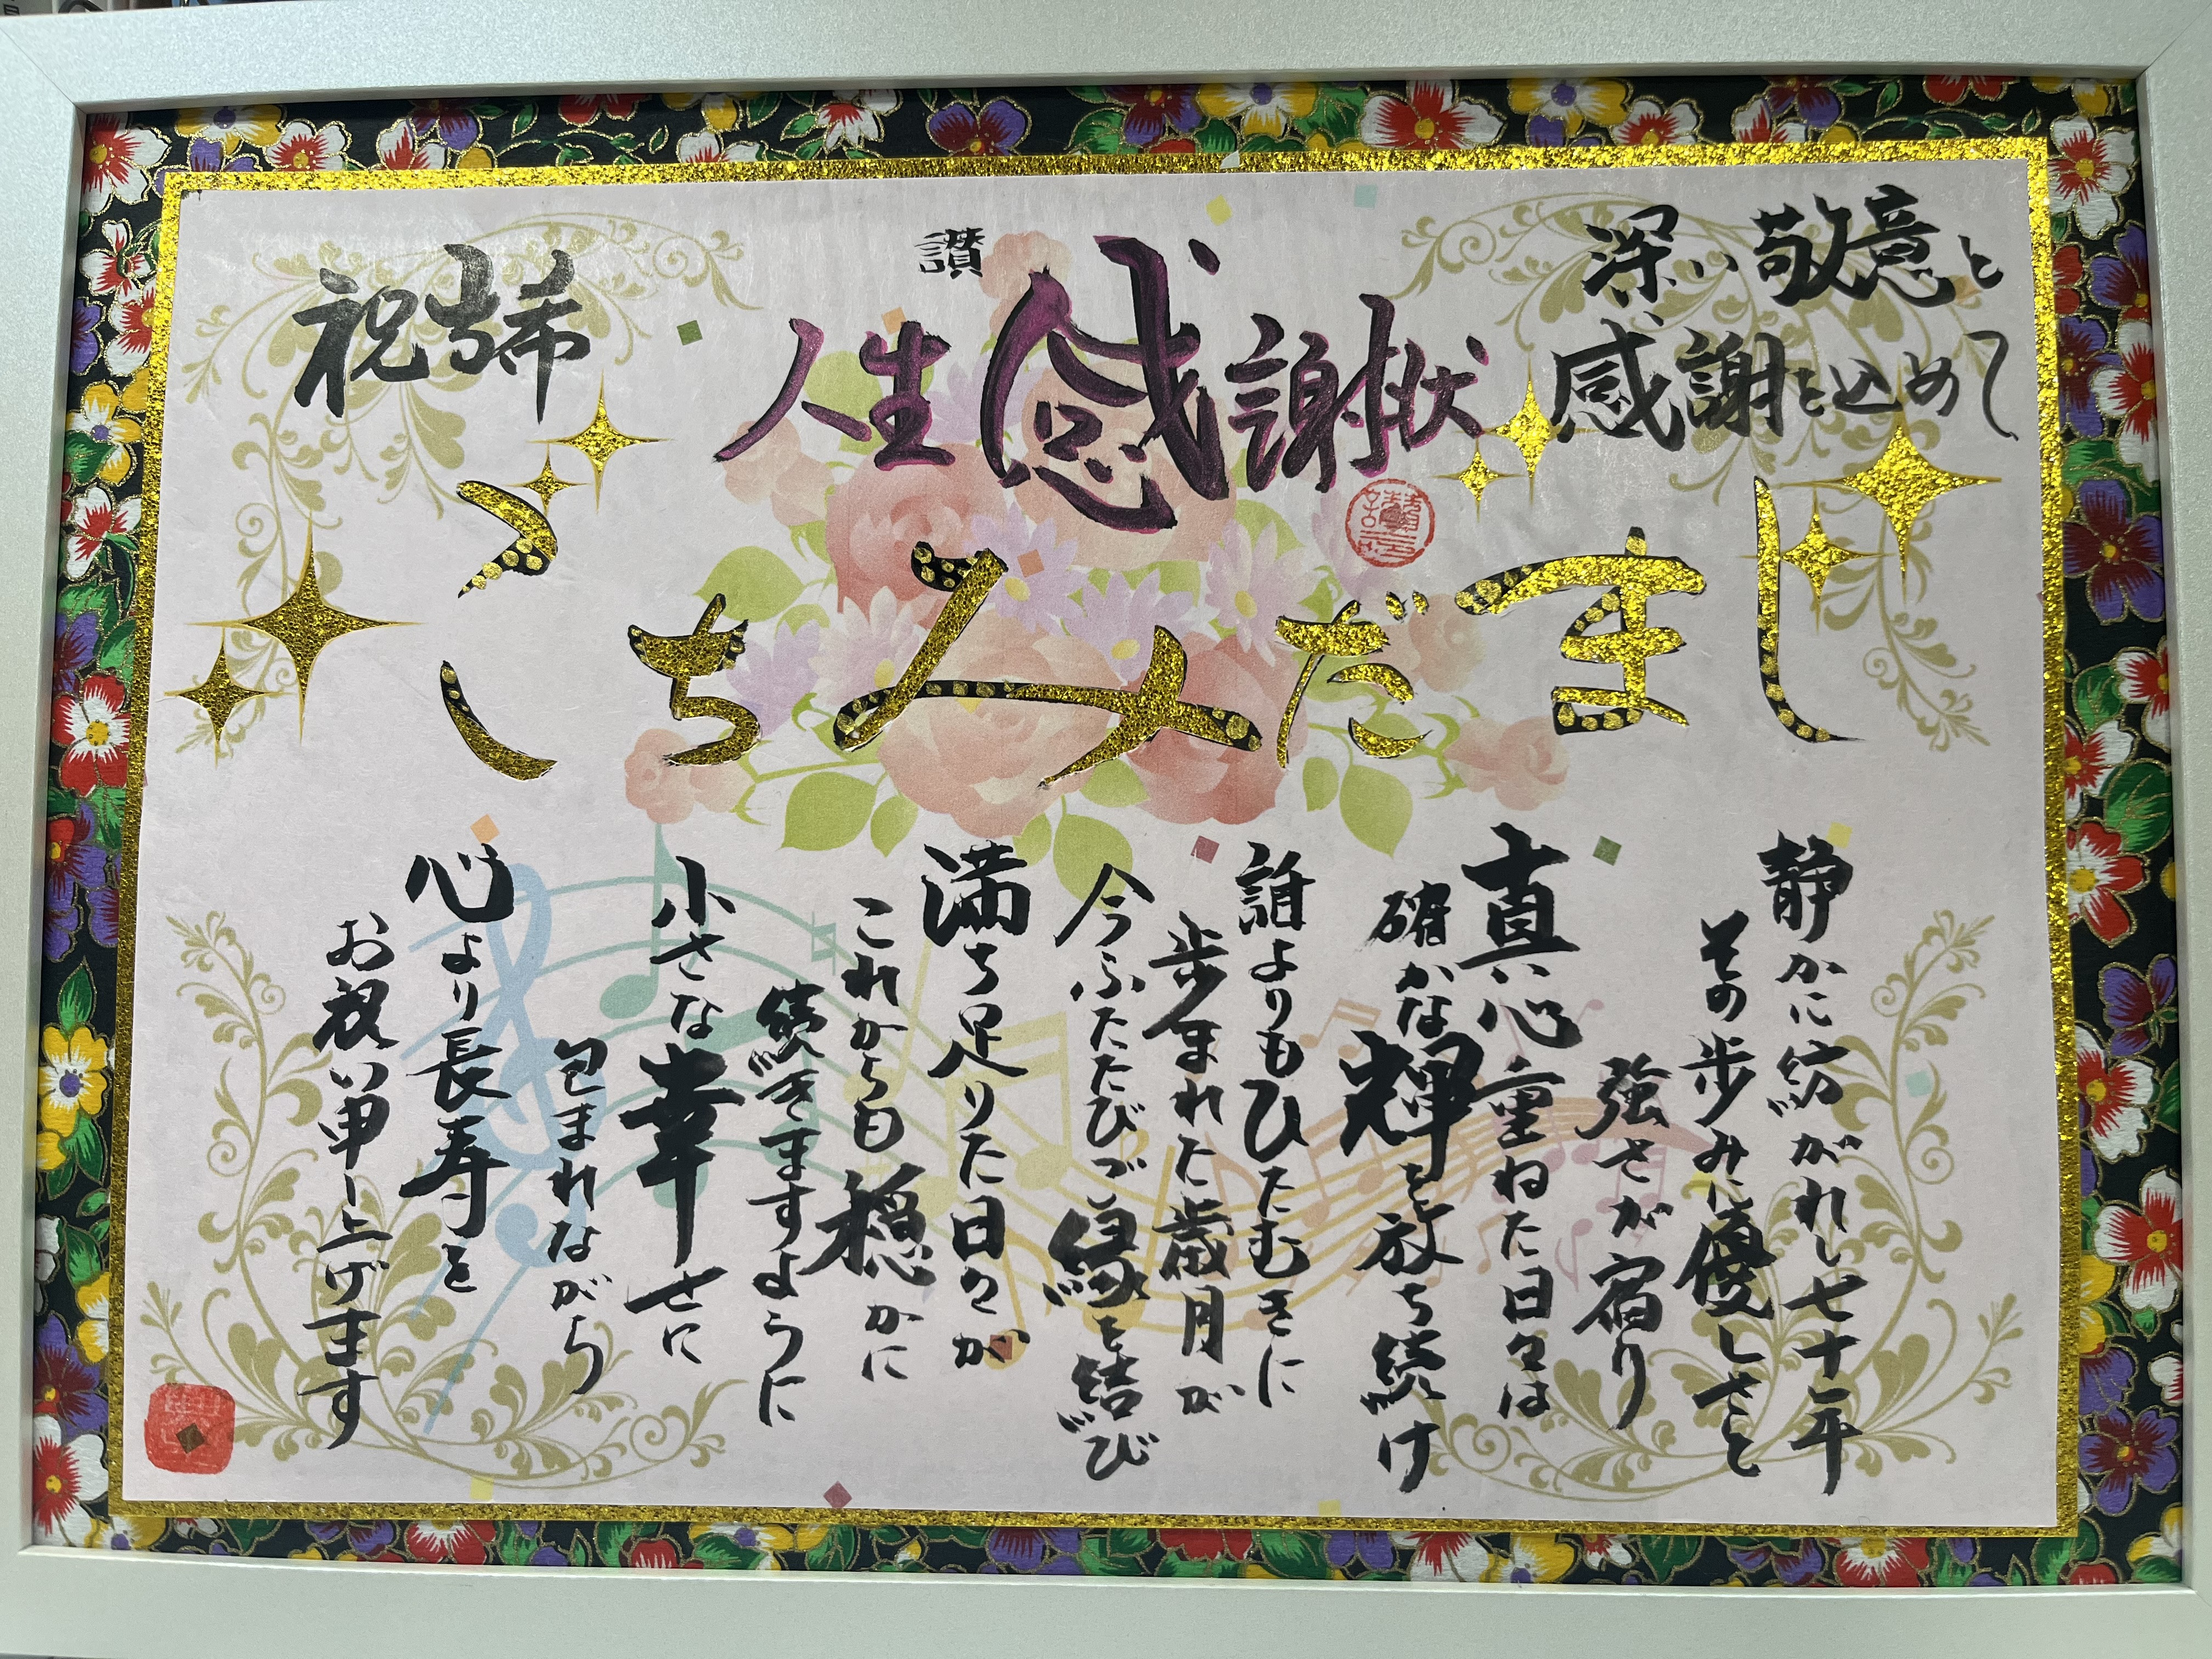 深い敬意と
感謝を込めて
讃
人生感謝状
祝古希
しまだみちこ
静かに紡がれし七十年
その歩みに優しさと
強さが宿り
真心重ねた日々は
確かな輝を放ち続け
誰よりもひたむきに
歩まれた歳月が
今ふたたびご縁を結び
満ち足りた日々が
これからも穏かに
続きますように
小さな幸せに
包まれながら
心より長寿を
お祝い申し上げます